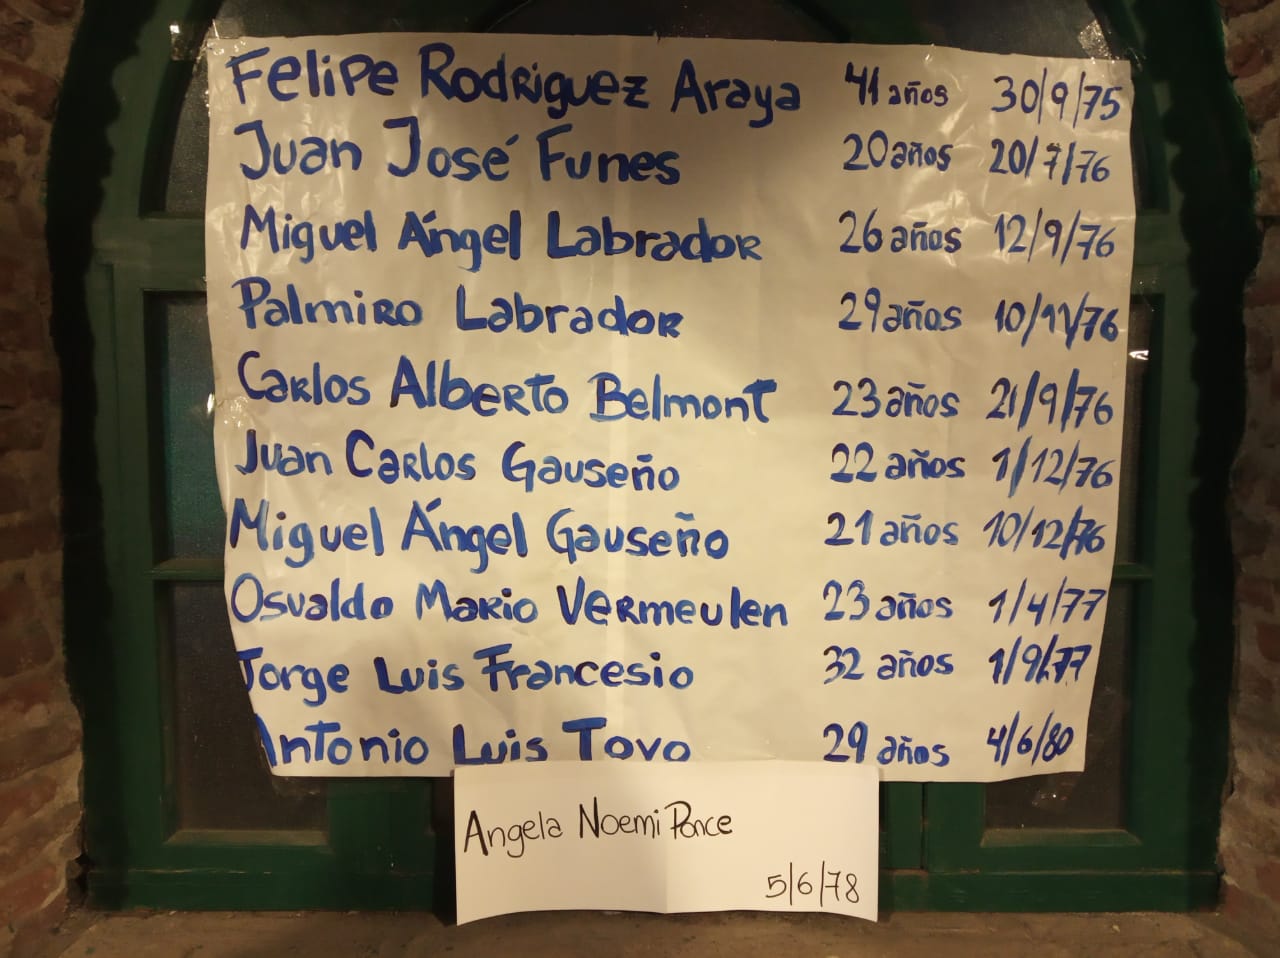 Felipe Rodriguez Araya 41 años 30/9/75
Juan José Funes 20 años 20/7/76
Miguel Ángel Labrador 26 años 12/9/76
Palmiro Labrador 29 años 10/11/76
Carlos Alberto Belmont 23 años 21/9/76
Juan Carlos Gauseño 22 años 1/12/76
Miguel Ángel Gauseño 21 años 10/12/76
Osvaldo Mario Vermeulen 23 años 1/4/77
Jorge Luis Francesio 32 años 1/9/77
Antonio Luis Tovo 29 años 4/6/80
Angela Noemi Ponce
5/6/78